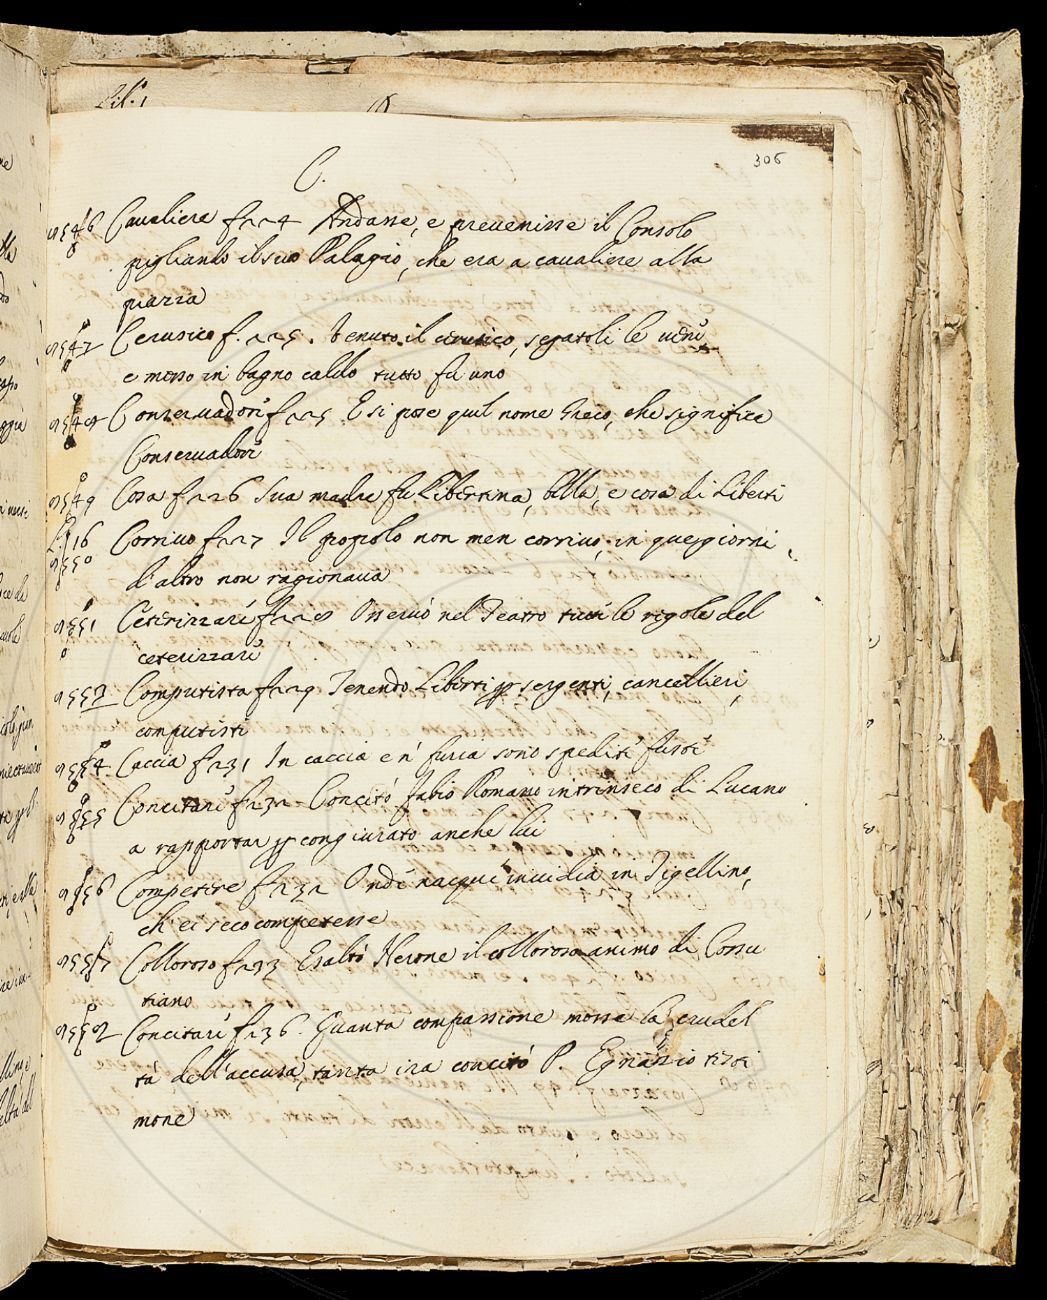 Lib. 1
306
C.
9546 Cavaliera f 224 Andasse, e prevenisse il Consolo
pigliando il suo Palagio, che era a cavaliere alla
piazza
9547 Cerusico f. 225. Venuto il cerusico, segatoli le veni
e messo in bagno caldo tutto fu uno
9548 Conservadori f 225 E si pose quel nome Greco, che significa
Conservadori
9549 Cosa f 226 Sua madre fu Libertina, bella, e cosa di Liberti
9550 Corrivo f 227 Il popolo non men corrivo, in que giorni
d'altro non ragionava
9551 Ceterizzare f 228 Osservò nel Teatro tutte le regole del
ceterizzare
9552 Computista f 229 Tenendo Liberti p sergenti, cancellieri,
computisti
9554 Caccia f 231 In caccia e 'n furia sono spediti
9555 Concitare f 232 Concitò Fabio Romano intrinseco di Lucano
a rapportar p congiurato anche lui
9556 Competere f 232 Onde nacque invidia in Tigellino,
ch' ei seco competesse
9557 Colloroso f 233 Esaltò Nerone il colloroso animo di Cossu
tiano
9558 Concitare f 236. Quanta compassione mosse la crudel
tà dell'accusa, tanta ira concitò P. Egnazio testi
mone